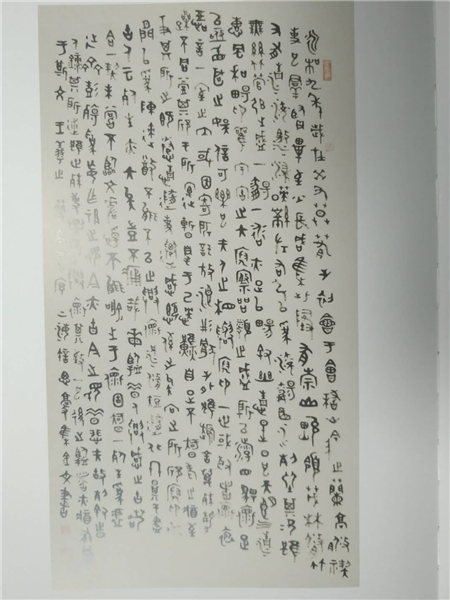 永和九年歲在癸丑暮春之初會于會稽山陰之蘭亭脩禊
事也群賢畢至少長咸集此地有崇山峻領茂林脩竹
又有清流激湍暎帶左右引以為流觴曲水列坐其次雖
無絲竹管弦之盛一觴一詠亦足以暢敘幽情是日也天朗氣清
惠風和暢仰觀宇宙之大俯察品類之盛所以遊目騁懷足
以極視聽之娛信可樂也夫人之相與俯仰一世或取諸懷抱
悟言一室之內或因寄所託放浪形骸之外雖趣舍萬殊靜
躁不同當其欣於所遇暫得於己怏然自足不知老之將至
及其所之既倦情隨事遷感慨係之矣向之所欣俛仰之
間已為陳迹猶不能不以之興懷況脩短隨化終期於盡
古人云死生亦大矣豈不痛哉每覽昔人興感之由若
合一契未嘗不臨文嗟悼不能喻之於懷固知一死生為虛
誕齊彭殤為妄作後之視今亦由今之視昔悲夫故列敘時
人錄其所述雖世殊事異所以興懷其致一也後之覽者亦將有感
於斯文 王羲之 集金文書